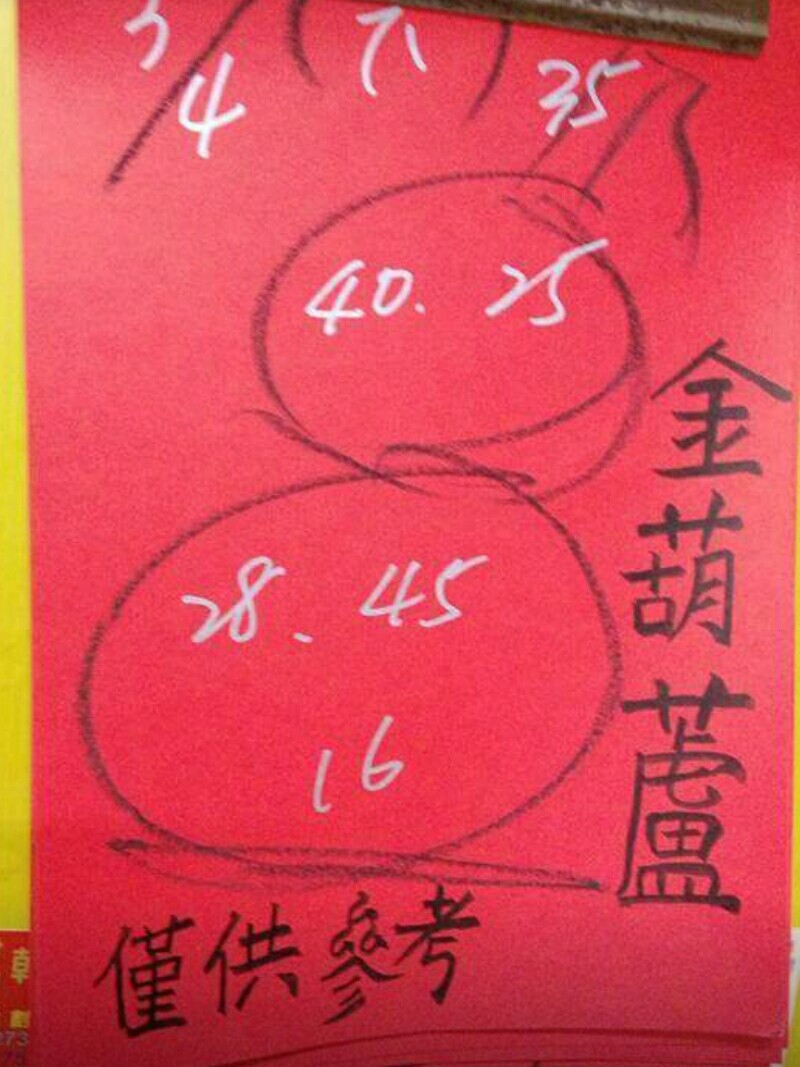 4 35
40. 25
28、45
16
金葫蘆
僅供參考
273